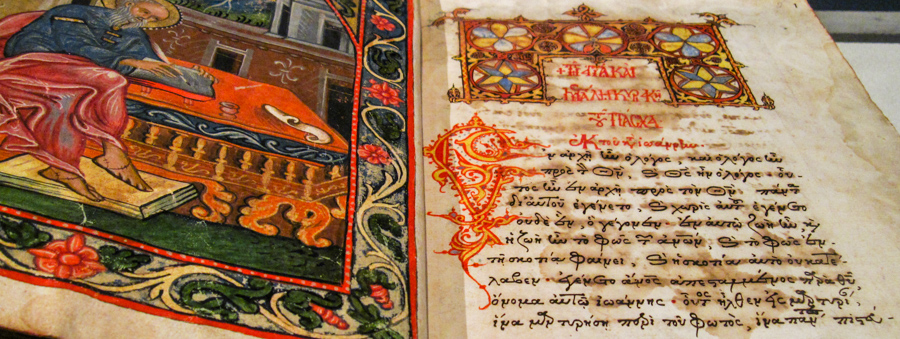 ΚΑΙ
ΠΑΣΧΑ
ἐκ τοῦ κ ἰωάννην
ἐν ἀρχῇ ἦν ὁ λόγος, καὶ ὁ λόγος ἦν
πρὸς τ θν, ϗ θς ἦν ὁ λόγος· οὗ
τος ἦν ἐν ἀρχῇ πρὸς τὸν θν· πάντ
δι' αὐτοῦ ἐγένετο, ϗ χωρὶς αὐτ ἐγένετο
οὐδὲ ἕν, ὃ γέγονεν· ἐν αὐτῷ ζωὴ ἦν, ϗ
ἡ ζωὴ ἦν τὸ φῶς τ ἀνων, ϗ τὸ φῶς ἐν
τῇ σκοτία φαίνει· ϗ ἡ σκοτία αὐτὸ οὐ κατέ
λαβεν· ἐγένετο ἄνος ἀπεσταλμένος παρὰ θυ,
ὄνομα αὐτῷ ἰωάννης· οὗτος ἦλθεν εἰς μαρτυρί
ἵνα μαρτυρήση περὶ τοῦ φωτὸς, ἵνα πάν πιστεύ